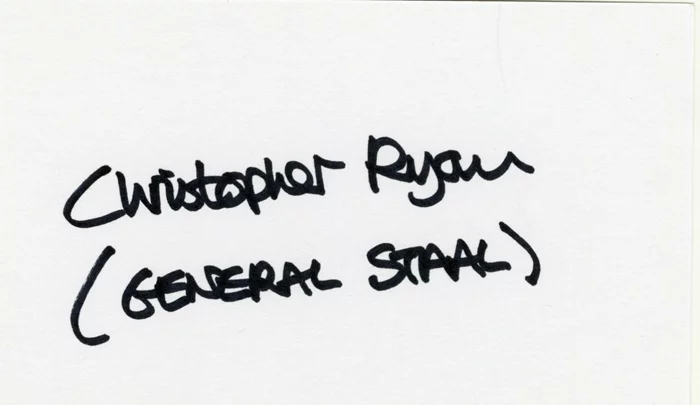 Christopher Ryan
(GENERAL STAAL)